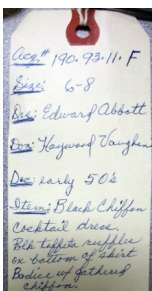 Acq.# 190.93.11.F
Size: 6-8
Des: Edward Abbott
Don: Haywood Vaughan
De: early 50's
Item: Black Chiffon
cocktail dress.
Blk taffeta ruffles
on bottom of skirt
Bodice w/ gathered
chiffon.